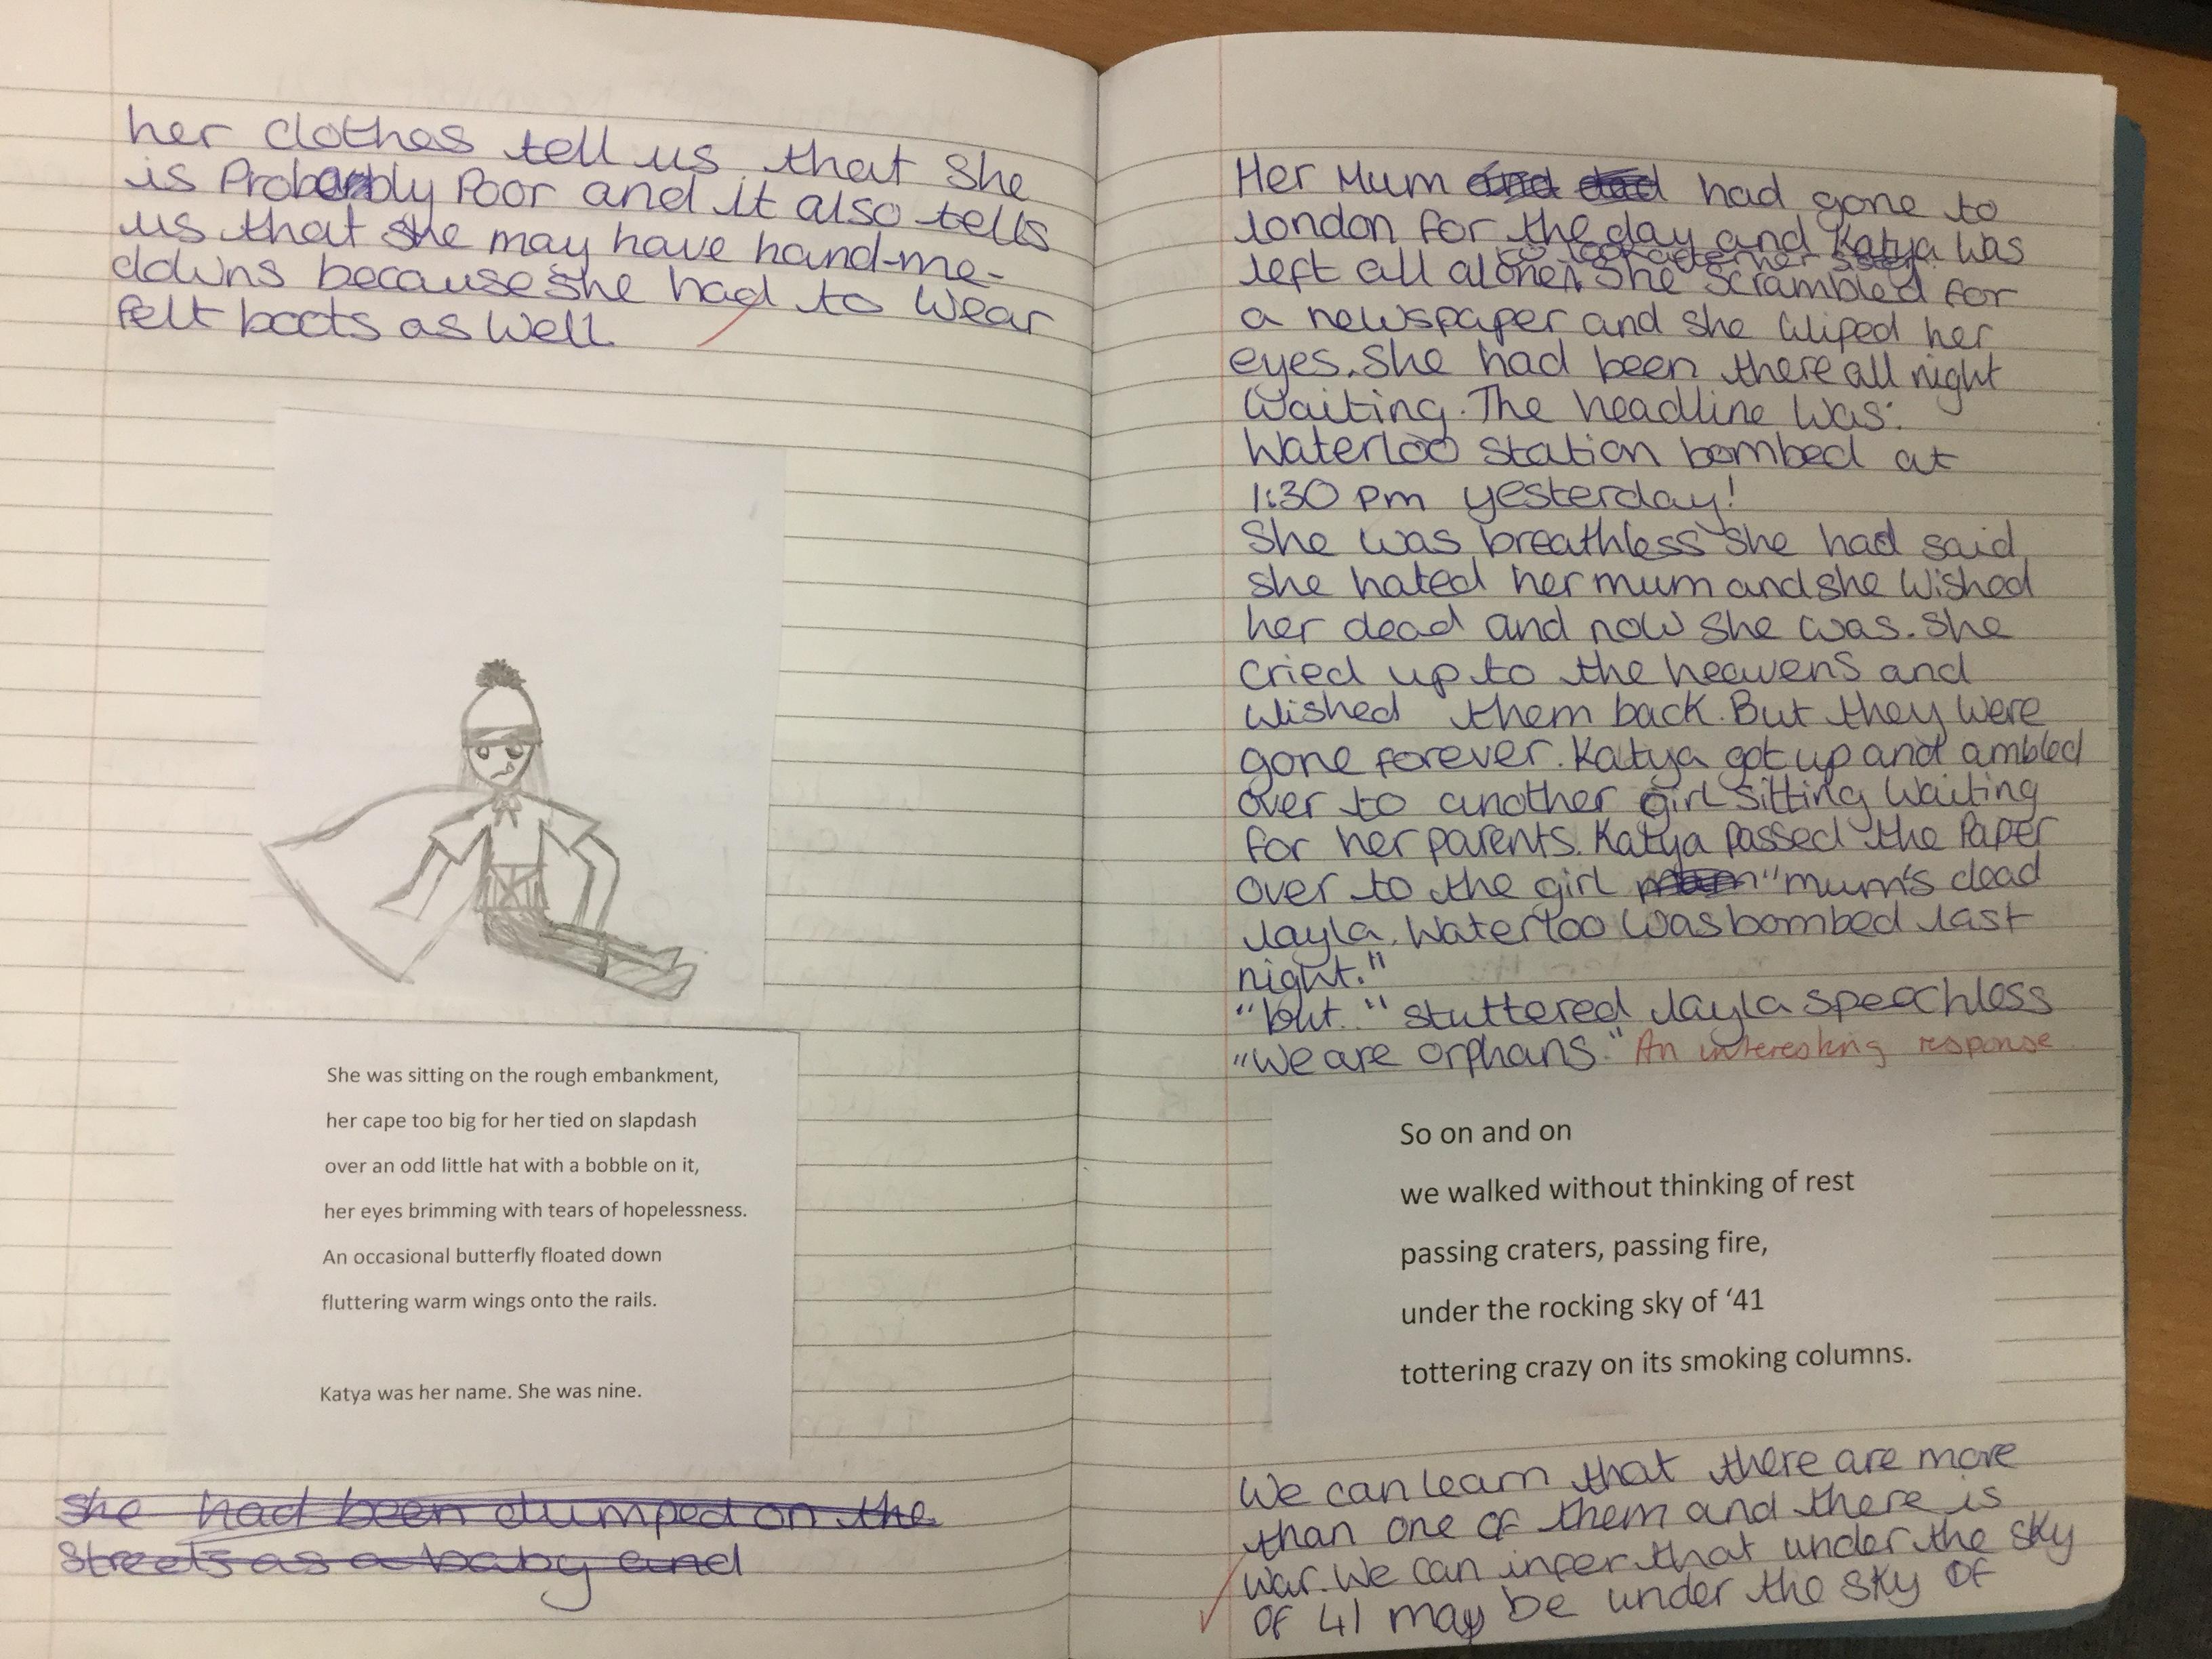 her clothes tell us that she
is Probably Poor and it also tells
us that she may have hand-me-
downs because she had to wear
felt boots as well
She was sitting on the rough embankment,
her cape too big for her tied on slapdash
over an odd little hat with a bobble on it,
her eyes brimming with tears of hopelessness.
An occasional butterfly floated down
fluttering warm wings onto the rails.
Katya was her name. She was nine.
she had been dumped on the
streets as a baby and
Her Mum and dad had gone to
london for the day and Katya was
to look after her
left all alone. She scrambled for
a newspaper and she wiped her
eyes. She had been there all night
waiting. The headline was:
Waterloo Station bombed at
1:30 pm yesterday!
She was breathless she had said
she hated her mum and she wished
her dead and now she was. she
cried up to the heavens and
wished them back. But they were
gone forever. Katya got up and ambled
over to another girl sitting waiting
for her parents. Katya passed the Paper
over to the girl "mum's dead
Layla. Waterloo was bombed last
night."
"but.." stuttered Layla speechless
"We are orphans." An interesting response
So on and on
we walked without thinking of rest
passing craters, passing fire,
under the rocking sky of '41
tottering crazy on its smoking columns.
We can learn that there are more
than one of them and there is
war. We can infer that under the sky
of 41 may be under the sky of